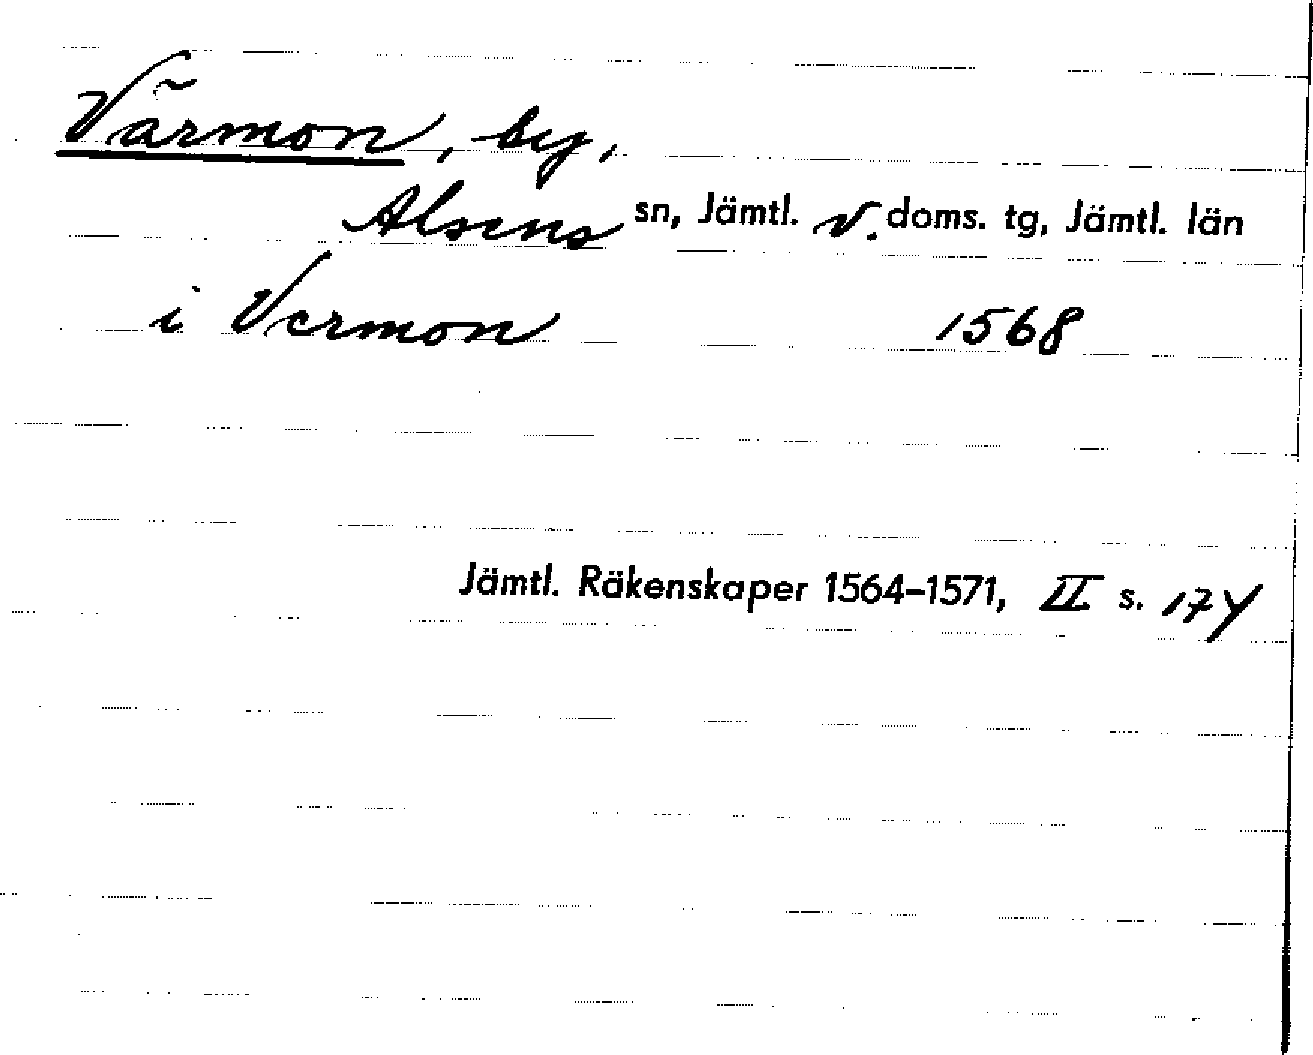 Värmon, by,
Alsens sn, Jämtl. v. doms. tg, Jämtl. län
i Vermon 1568
Jämtl. Räkenskaper 1564–1571, II s. 174